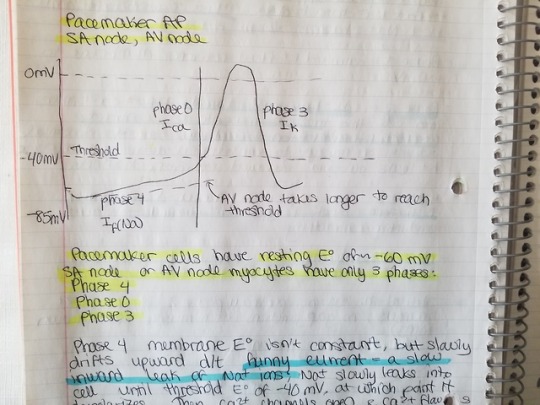 Pacemaker AP
SA node, AV node
0mV
phase 0
ICa
phase 3
IK
Threshold
-40mV
phase 4
If(Na)
AV node takes longer to reach
threshold
-85mV
Pacemaker cells have resting E° of ~ -60 mV
SA node or AV node myocytes have only 3 phases:
Phase 4
Phase 0
Phase 3
Phase 4 membrane E° isn't constant, but slowly
drifts upward d/t funny current = a slow
inward leak of Na+ ions. Na+ slowly leaks into
cell until threshold E° of -40 mV, at which point it
Then Ca2+ channels open & Ca2+